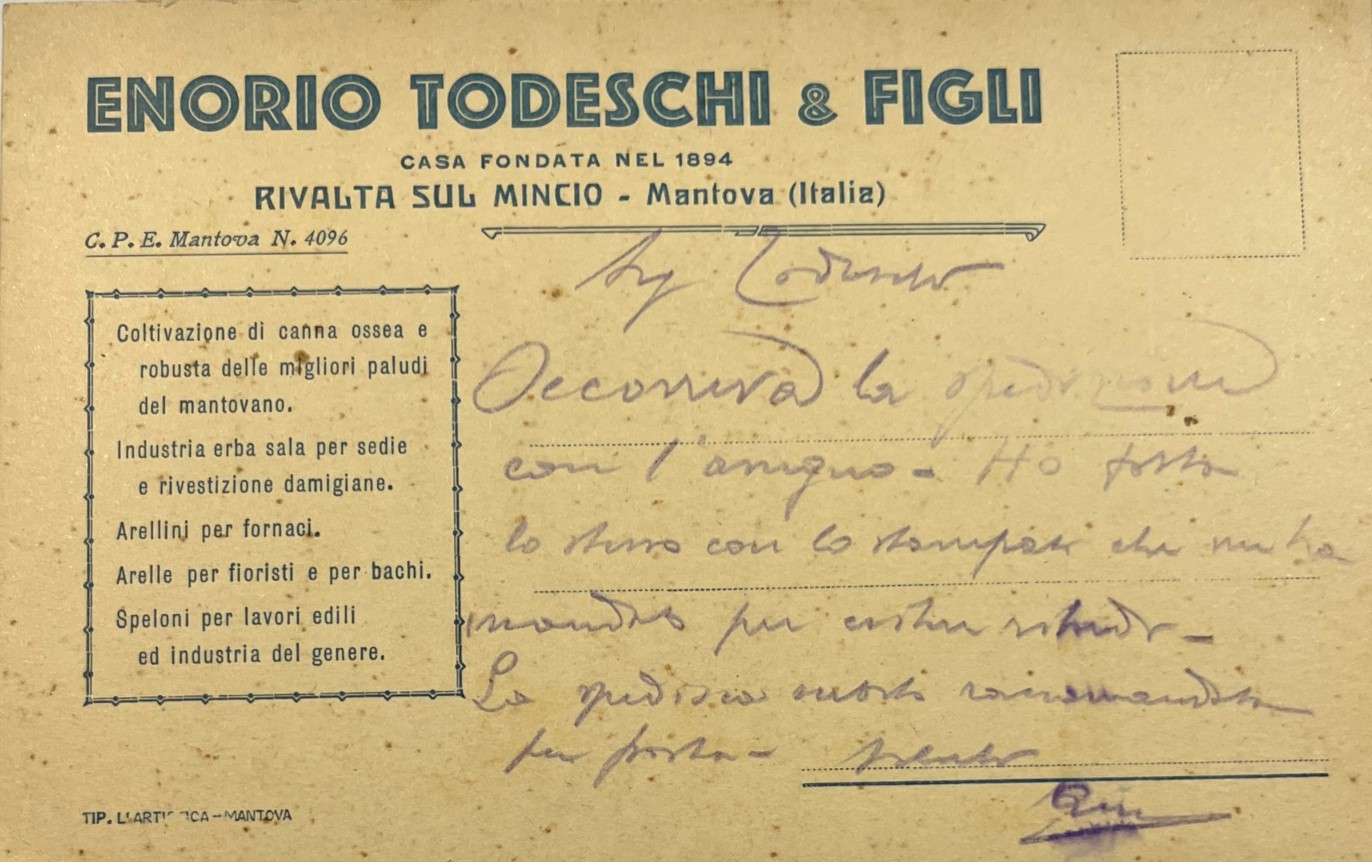 ENORIO TODESCHI & FIGLI
CASA FONDATA NEL 1894
RIVALTA SUL MINCIO - Mantova (Italia)
C. P. E. Mantova N. 4096
Coltivazione di canna ossea e
robusta delle migliori paludi
del mantovano.
Industria erba sala per sedie
e rivestizione damigiane.
Arellini per fornaci.
Arelle per fioristi e per bachi.
Speloni per lavori edili
ed industria del genere.
Sig Todeschi
Occorreva la spedizione
con l'assegno - Ho fatto
lo stesso con lo stampato che mi ha
mandato per
La spedisca subito raccomandata
per posta - Saluti
TIP. L'ARTISTICA - MANTOVA